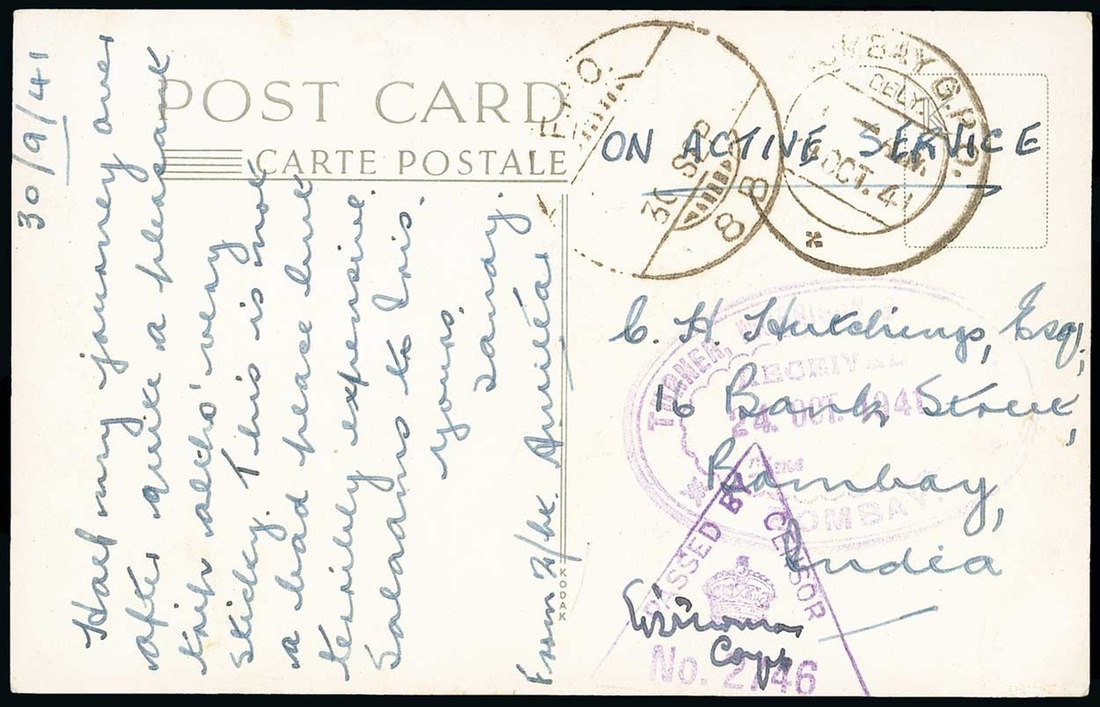 30/9/41
Half my journey over
after quite a pleasant
trip altho' very
sticky. This is not
a bad place but
terribly expensive.
Salaams to Iris.
Yours,
Sandy.
From 2/Lt.
POST CARD
CARTE POSTALE
KODAK
F.P.O.
30 SEP
88
BOMBAY G.P.O.
DELY
OCT. 41
ON ACTIVE SERVICE
C. H. Hutchings, Esq,
16 Bank Street,
Bombay,
India
TURNER,
ARCHIVAL
24. OCT. 1941
BOMBAY
PASSED BY CENSOR
Capt
No. 2746